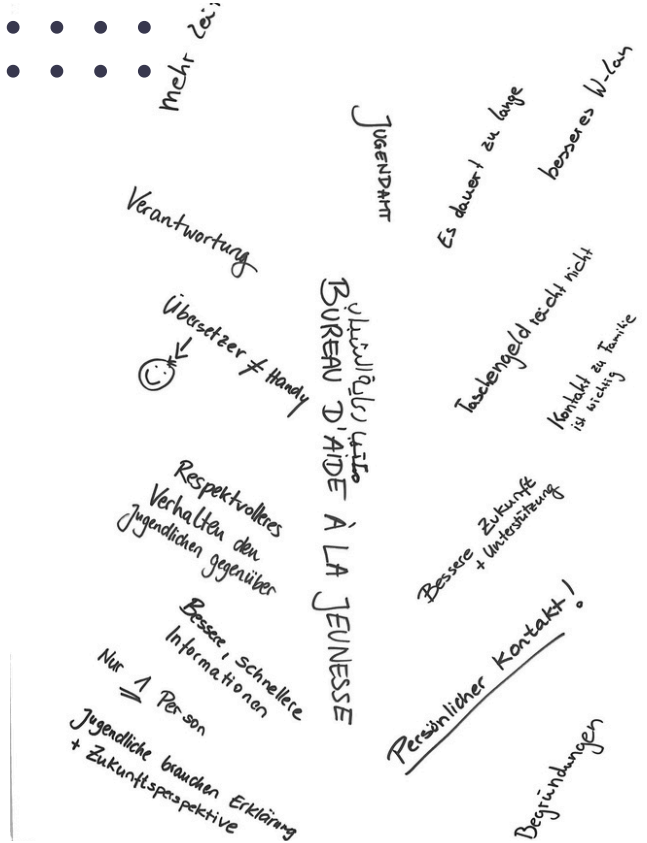 mehr
JUGENDAMT
Es dauert zu lange
besseres W-lan
Verantwortung
Übersetzer ≠ Handy
BUREAU D'AIDE À LA JEUNESSE
Taschengeld reicht nicht
Kontakt zu Familie
ist wichtig
Respektvolleres
Verhalten den
Jugendlichen gegenüber
Bessere Zukunft
+ Unterstützung
Bessere, schnellere
Informationen
Persönlicher Kontakt!
Nur 1 Person
Jugendliche brauchen Erklärung
+ Zukunftsperspektive
Begründungen